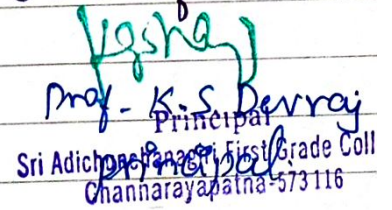 Prof - K.S. Devraj
Principal
Sri Adichunchanagiri First Grade Coll
principal
Channarayapatna-573116